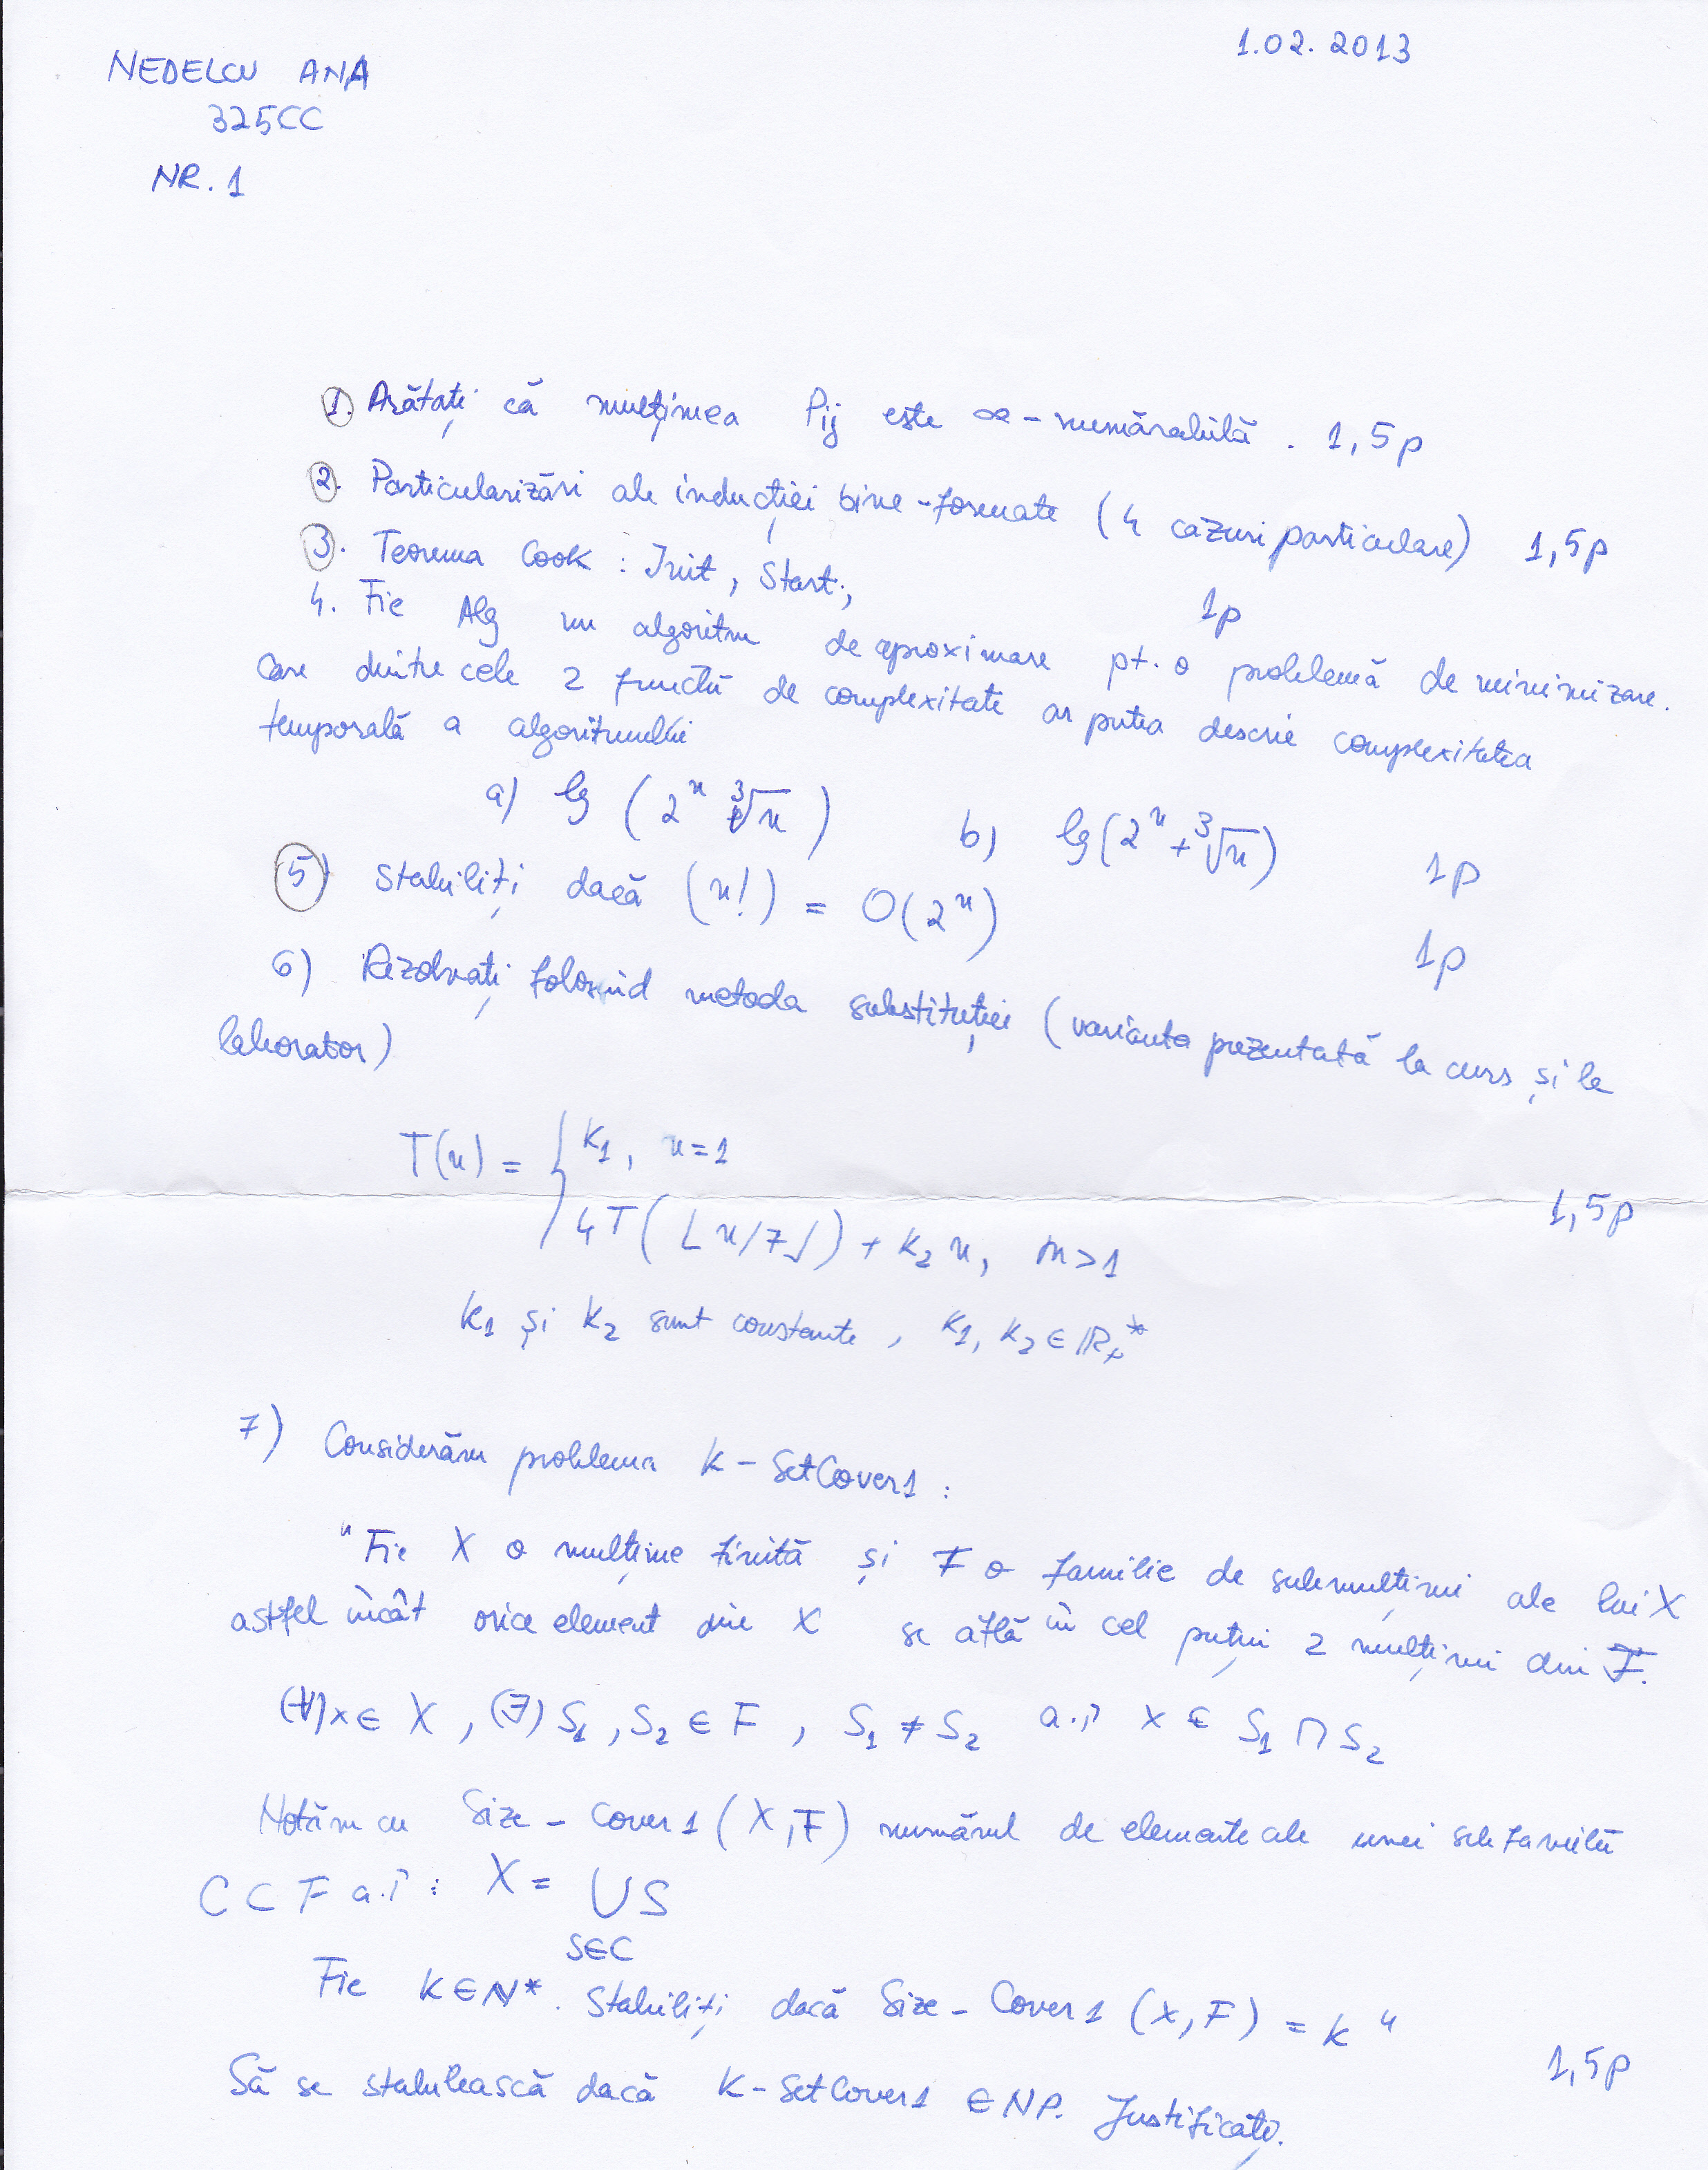 1.02.2013
NEDELCU ANA
325CC
NR. 1
1. Arătați că mulțimea Pij este ∞-numărabilă. 1,5p
2. Particularizări ale inducției bine-formate (4 cazuri particulare) 1,5p
3. Teorema Cook : Init, Start;, 1p
4. Fie Alg un algoritm de aproximare pt. o problemă de minimizare.
Care dintre cele 2 funcții de complexitate ar putea descrie complexitatea
temporală a algoritmului
a) lg (2ⁿ ∛n) b) lg(2ⁿ + ∛n) 1p
5) Stabiliți dacă (n!) = O(2ⁿ) 1p
6) Rezolvați folosind metoda substituției (varianta prezentată la curs și la
laborator)
T(n) = { k₁, n=1
4T(⌊n/7⌋) + k₂n, n>1 1,5p
k₁ și k₂ sunt constante, k₁, k₂ ∈ ℝ₊*
7) Considerăm problema k-SetCover1 :
"Fie X o mulțime finită și F o familie de submulțimi ale lui X
astfel încât orice element din X se află în cel puțin 2 mulțimi din F.
(∀)x ∈ X, (∃) S₁, S₂ ∈ F, S₁ ≠ S₂ a.î x ∈ S₁ ∩ S₂
Notăm cu Size-Cover1(X,F) numărul de elemente ale unei subfamilii
C ⊂ F a.î : X = ∪ S
S∈C
Fie k∈N*. Stabiliți dacă Size-Cover1 (X,F) = k"
Să se stabilească dacă k-SetCover1 ∈ NP. Justificați. 1,5p